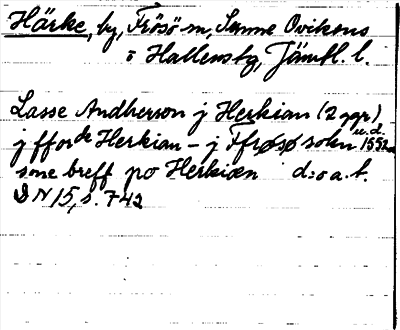 Härke, by, Frösö sn, Sunne Ovikens
i Hallens tg, Jämtl. l.
Lasse Andherson j Herkian (2 ggr)
j fforde Herkian - j Ffrøsø sokn u.d. 1552
sine breff po Herkiæn d:o a.t.
DN 15, s. 742